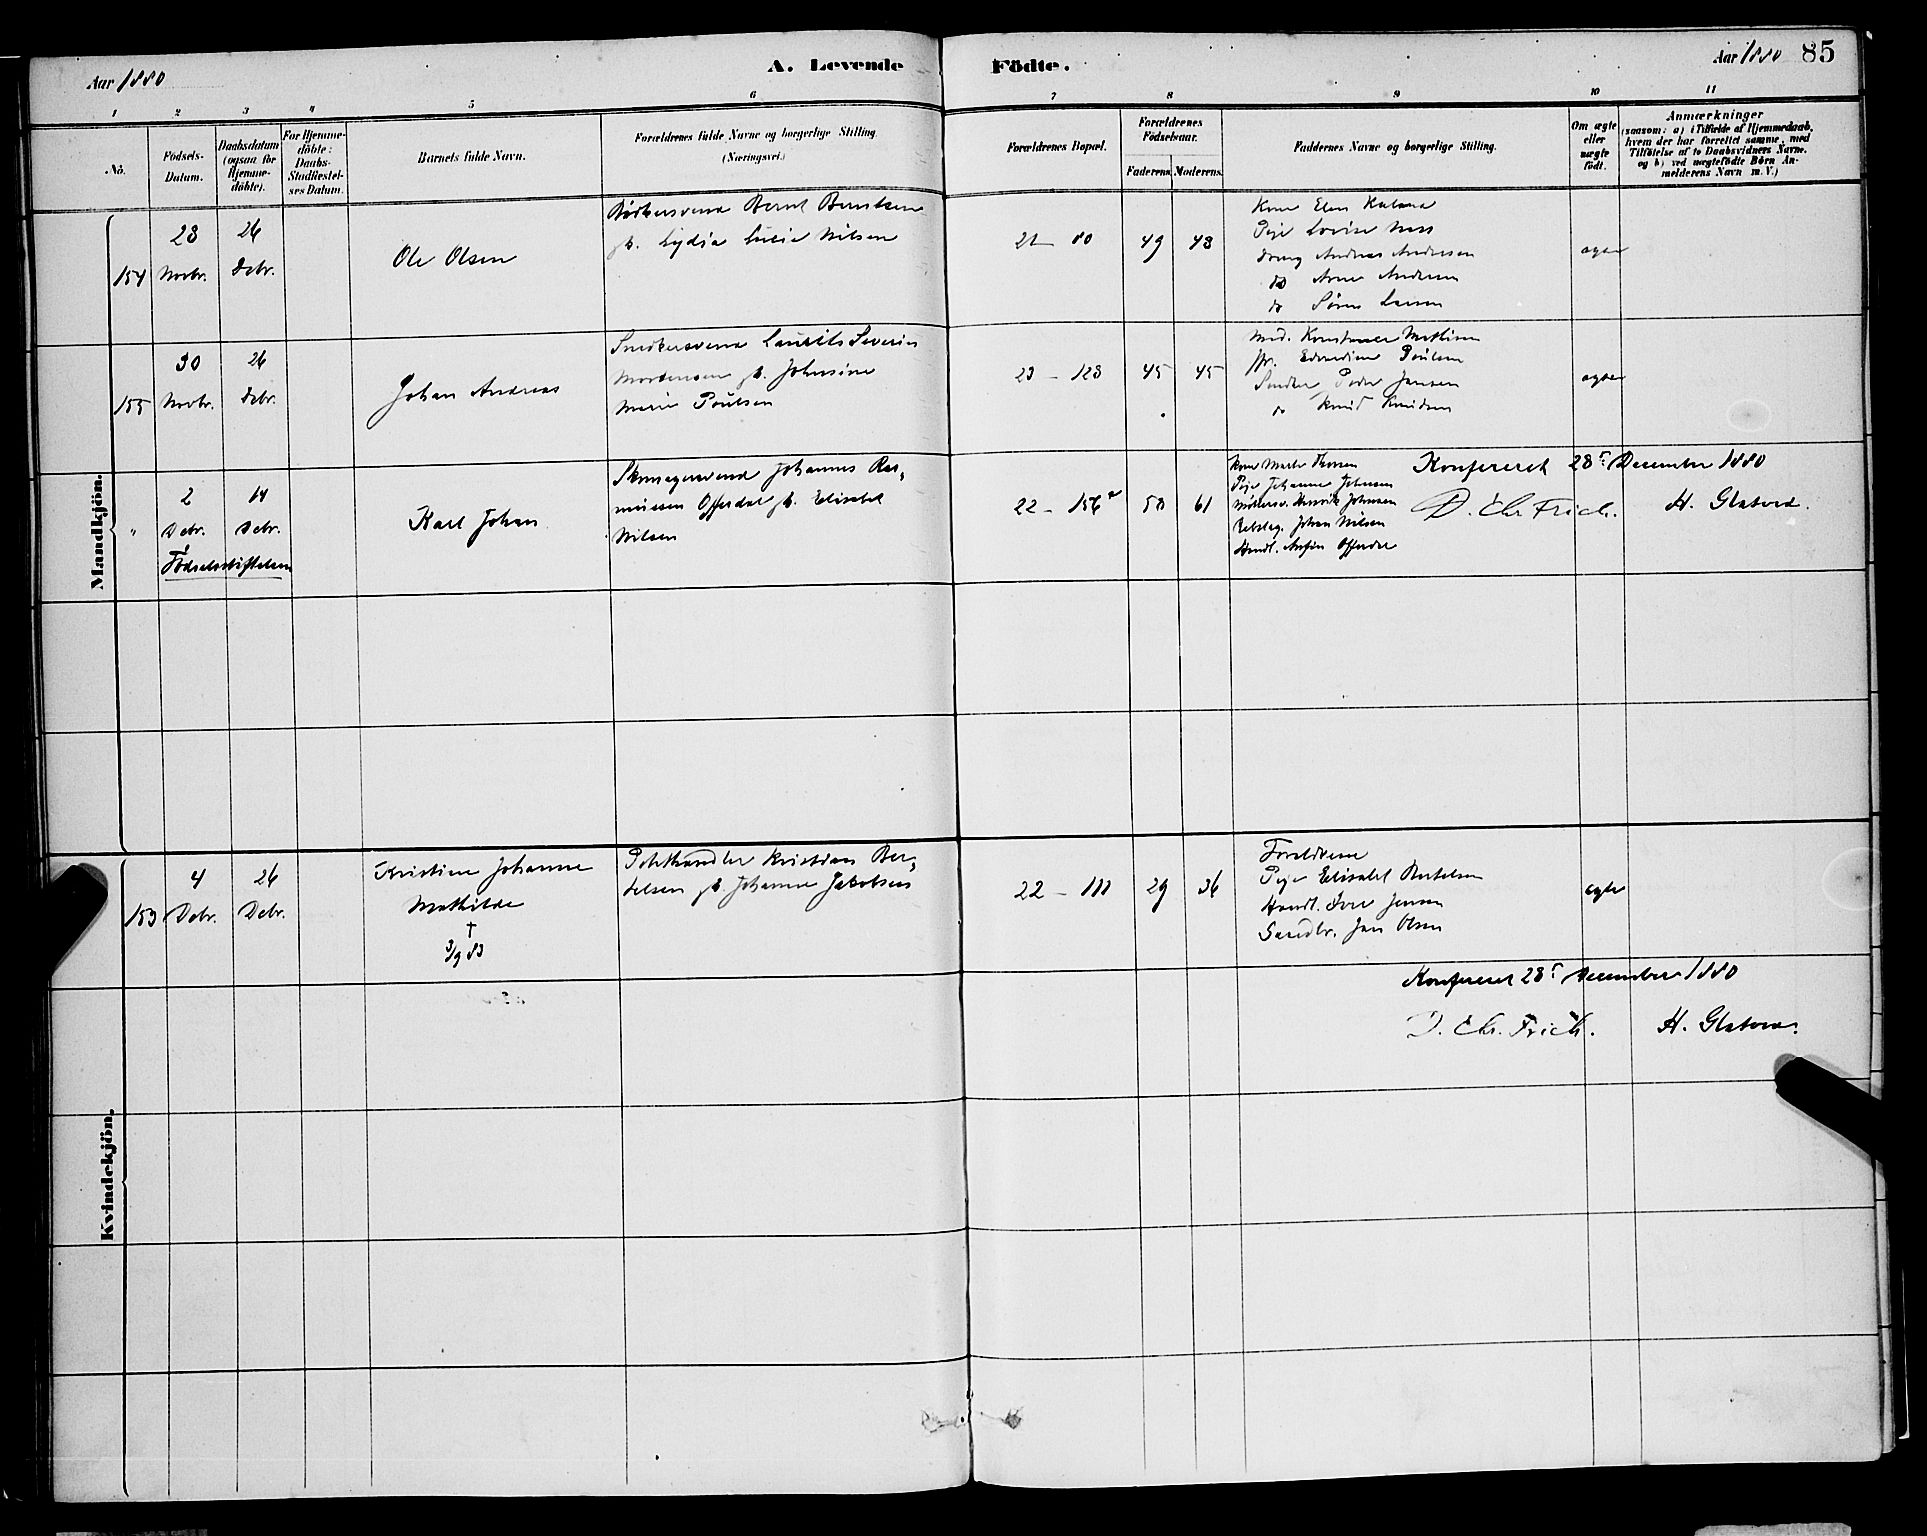 Aar 1880
A. Levende
Födte.
Aar 1880 85
1 2 3 4 5 6 7 8 9 10 11
No.
Födsels-
Datum.
Daabsdatum
(ogsaa for
Hjemme-
döbte).
For Hjemme-
döbte:
Daabs-
Stadfæstel-
ses Datum.
Barnets fulde Navn.
Forældrenes fulde Navne og borgerlige Stilling.
(Næringsvei.)
Forældrenes Bopæl.
Forældrenes
Födselsaar.
Faderens. Moderens.
Faddernes Navne og borgerlige Stilling.
Om ægte
eller
uægte
födt.
Anmærkninger
(saasom: a) i Tilfælde af Hjemmedaab,
hvem der har forrettet samme, med
Tilföielse af to Daabsvidners Navne,
og b) ved uægtefödte Börn An-
melderens Navn m. V.)
Mandkjön.
154
28
Novbr.
26
Debr.
Ole Olsen
Bødkersvend Bernt Berntsen
Lydia Lucie Nilsen
21 - 80
49
48
Pige Lovise Ness
dreng Andreas Andersen
do Arne Andersen
do Søren Larsen
ægte
155
30
Novbr.
26
Debr.
Johan Andreas
Snedkersvend Laurits Severin
Mortensen Johnsine
Marie Poulsen
23 - 128
45
45
Mad. Konstance Mathisen
Snedker Peder Jansen
do Knud Knudsen
ægte
"
2
Debr.
14
Debr.
Fødselsstiftelsen
Karl Johan
Skomagersvend Johannes Ras-
mussen Offerdal Elisabet
Nilsen
22 - 156
58
61
Pige Johanne Johnsen
Møllersv. Henrik Johnsen
Rebslag. Johan Nilsen
Konfereret 28 December 1880
D. Chr Frich.
H. Glatved.
Kvindekjön.
153
4
Debr.
26
Debr.
Kristine Johanne
Mathilde
†
3/9 83
Kristian Ber-
telsen Johanne Jakobsen
22 - 111
29
36
Forældrene
Pige Elisabet Bertelsen
Handl. Iver Jensen
Jan Olsen
ægte
Konfereret 28 December 1880
D. Chr. Frich.
H. Glatved.